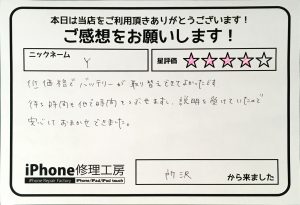 本日は当店をご利用頂きありがとうございます！
ご感想をお願いします！
ニックネーム
Y
星評価
★★★★☆
低価格でバッテリーが取り替えできてよかったです
待ち時間も他で時間をつぶせますし、説明も受けていたので
安心しておまかせできました。
iPhone修理工房
iPhone Repair Factory
iPhone/iPad/iPod touch
所沢
から来ました